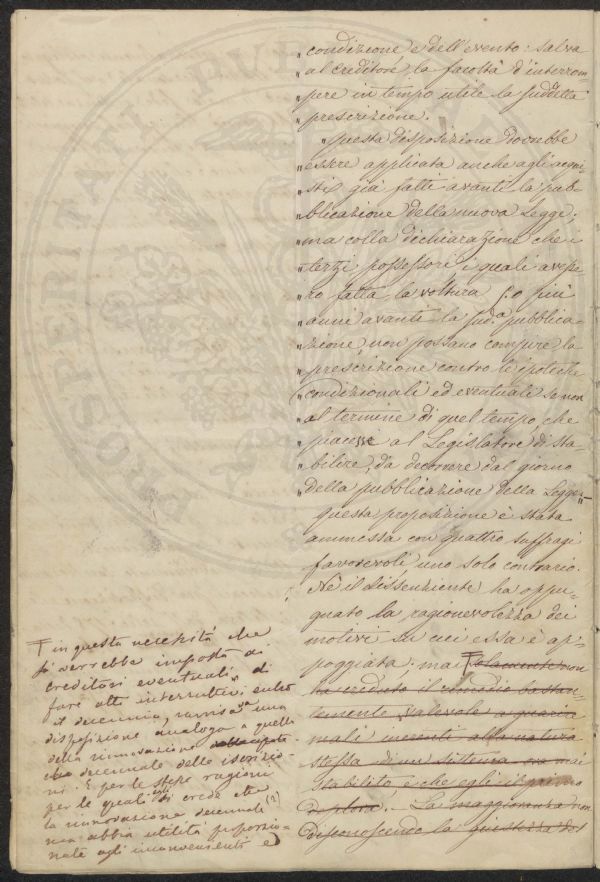 „condizione e dell'evento: salva
„al creditore la facoltà d'interrom
„pere in tempo utile la suddetta
„prescrizione.
„Questa disposizione dovrebbe
„essere applicata anche agli acqui-
„sti già fatti avanti la pub-
„blicazione della nuova Legge;
„ma colla dichiarazione che i
„terzi possessori i quali avesse-
„ro fatta la voltura 5 o più
„anni avanti la sud.a pubblica-
„zione non possano compire la
„prescrizione contro le ipoteche
„condizionali ed eventuali se non
„al termine di quel tempo che
„piacesse al Legislatore di sta-
„bilire, da decorrere dal giorno
„della pubblicazione della Legge„
questa proposizione è stata
ammessa con quattro suffragi
favorevoli, uno solo contrario.
Nè il dissenziente ha oppu-
gnato la ragionevolezza dei
motivi su cui essa è ap-
poggiata: ma solamente non
ha creduto il rimedio bastan-
temente valevole a guarire
mali inerenti alla natura
stessa di un sistema mai
stabilito, e che egli il primo
deplora. La maggioranza non
disconoscendo la giustezza del
in questa necessità che
si verrebbe imposta ai
creditori eventuali di
fare atti interruttivi entro
il decennio, ravvisava una
disposizione analoga a quella
della rinnovazione
decennale delle iscrizio-
ni. E per le stesse ragioni
per le quali egli crede che
la rinnovazione decennale (2)
non abbia utilità proporzio-
nata agli inconvenienti e
PROSPERITATI PUBL